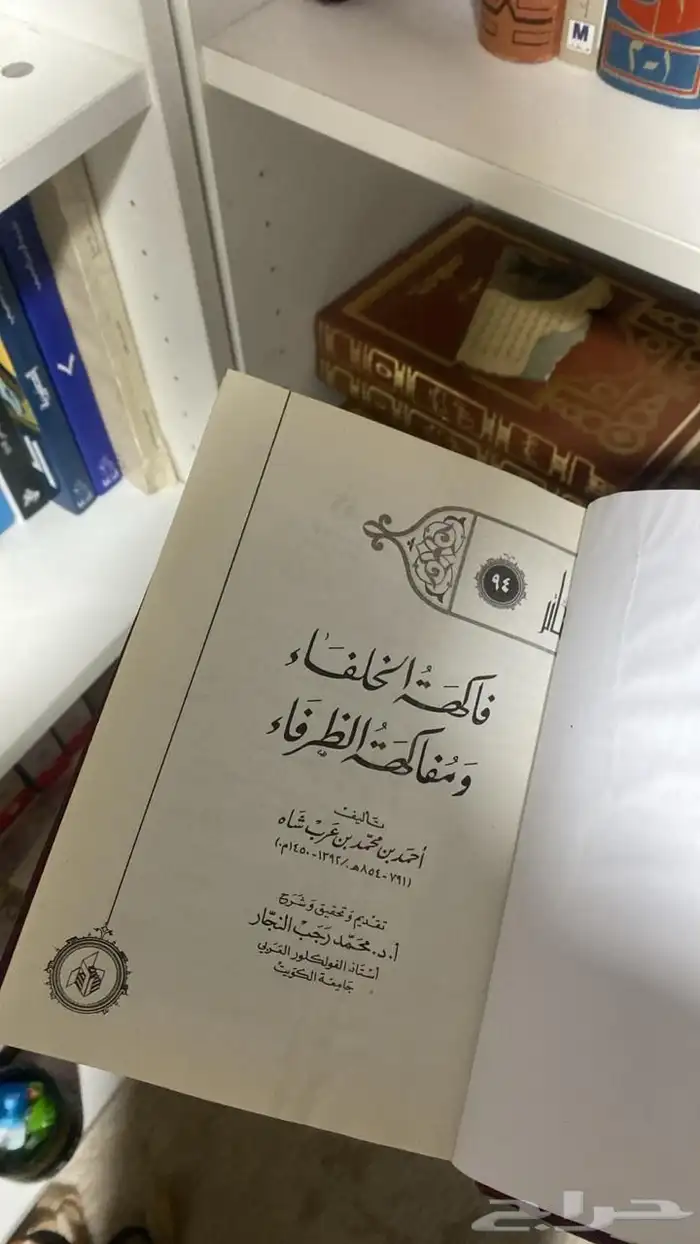 ٩٤
فاكهةُ الخلفَاء
وَمُفاكهةُ الظرفَاء
تأليف
أحمَد بن محمّد بن عَربْ شَاه
(٧٩١-٨٥٤هـ/١٣٩٢-١٤٥٠م.)
تقديم وَتحقيق وَشَرح
أ.د. محمَّد رَجَبْ النجَّار
أستاذ الفولكلور العَربي
جَامِعَة الكويت
M
١-٢
حراج